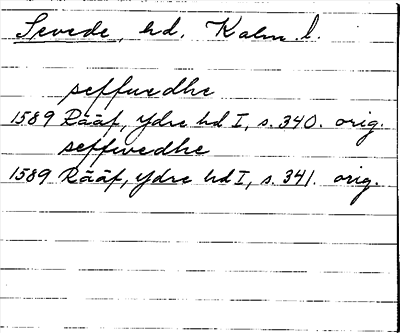 Sevede, hd. Kalm. l.
seffuedhe
1589 Rääf, Ydre hd I, s. 340. orig.
seffwedhe
1589 Rääf, Ydre hd I, s. 341. orig.